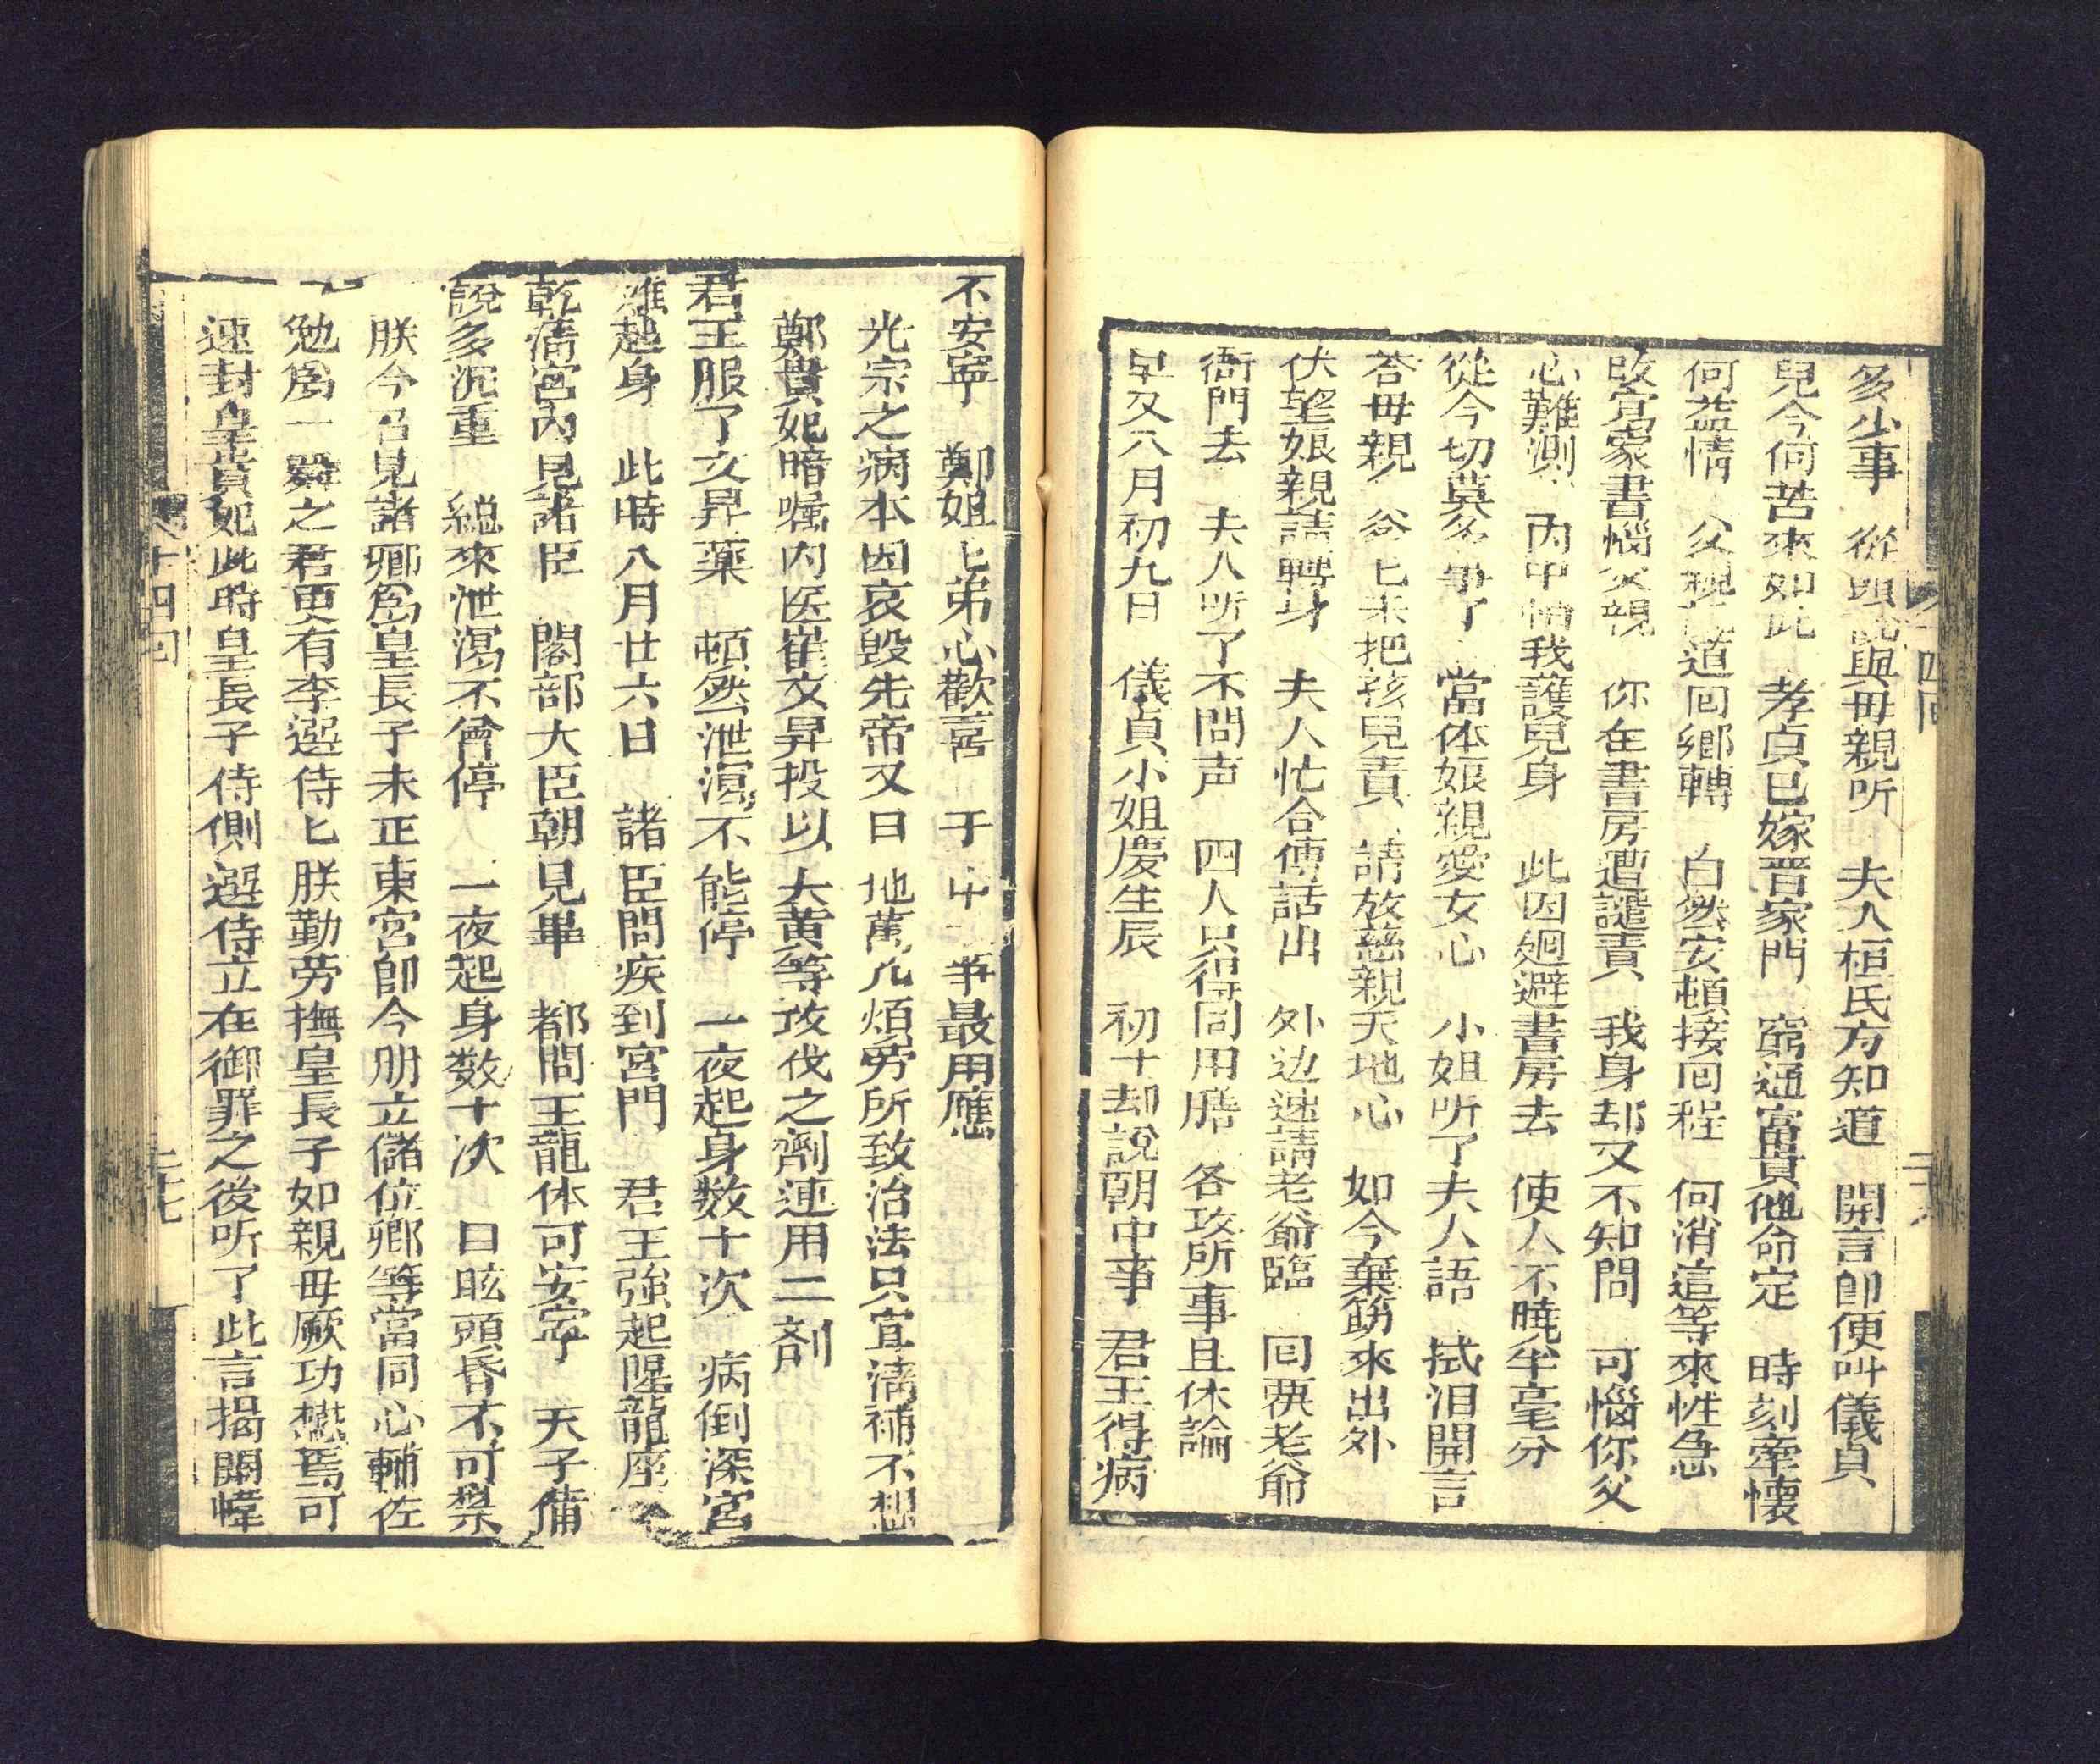 多少事　從頭說與母親听　夫人桓氏方知道　開言即便叫儀貞
兒今何苦來如此　孝貞已嫁晋家門　窮通富貴他命定　時刻牽懷
何益情　父親道回鄉轉　自然安頓接回程　何消這等來性急
改寫家書惱父親　你在書房遭譴責　我身却又不知問　可惱你父
心難測　丙中情我護兒身　此因廻避書房去　使人不曉半毫分
從今切莫多事了　當体娘親愛女心　小姐听了夫人語　拭泪開言
荅母親　爹匕未把孩兒責　請放慈親天地心　如今棄筯來出外
伏望娘親請轉身　夫人忙合傳話出　外边速請老爺臨　回禀老爺
衙門去　夫人听了不問声　四人只得同用膳　各攻所事且休論
早又八月初九日　儀貞小姐慶生辰　初十却說朝中事　君王得病
不安寧　鄭姐匕弟心歡喜　于中事最用應
光宗之病本因哀毀先帝又日　地萬几煩劳所致治法只宜淸補不想
鄭貴妃暗嘱内医崔文昇投以大黄等攻伐之劑連用二剤
君王服了文昇藥　頓然泄瀉不能停　一夜起身数十次　病倒深宮
難起身　此時八月廿六日　諸臣問疾到宮門　君王強起陞龍座
乾清宮內見諸臣　閣部大臣朝見畢　都問王龍体可安寧　天子備
說多沉重　縂來泄瀉不曾停　一夜起身数十次　目眩頭昏不可禁
朕今召見諸卿爲皇長子未正東宮即今册立儲位卿等當同心輔佐
勉爲一舜之君更有李選侍匕朕勤劳撫皇長子如親母厥功懋焉可
速封皇貴妃此時皇長子侍側選侍立在御罪之後听了此言揭開幃
十四回
二十七
四回